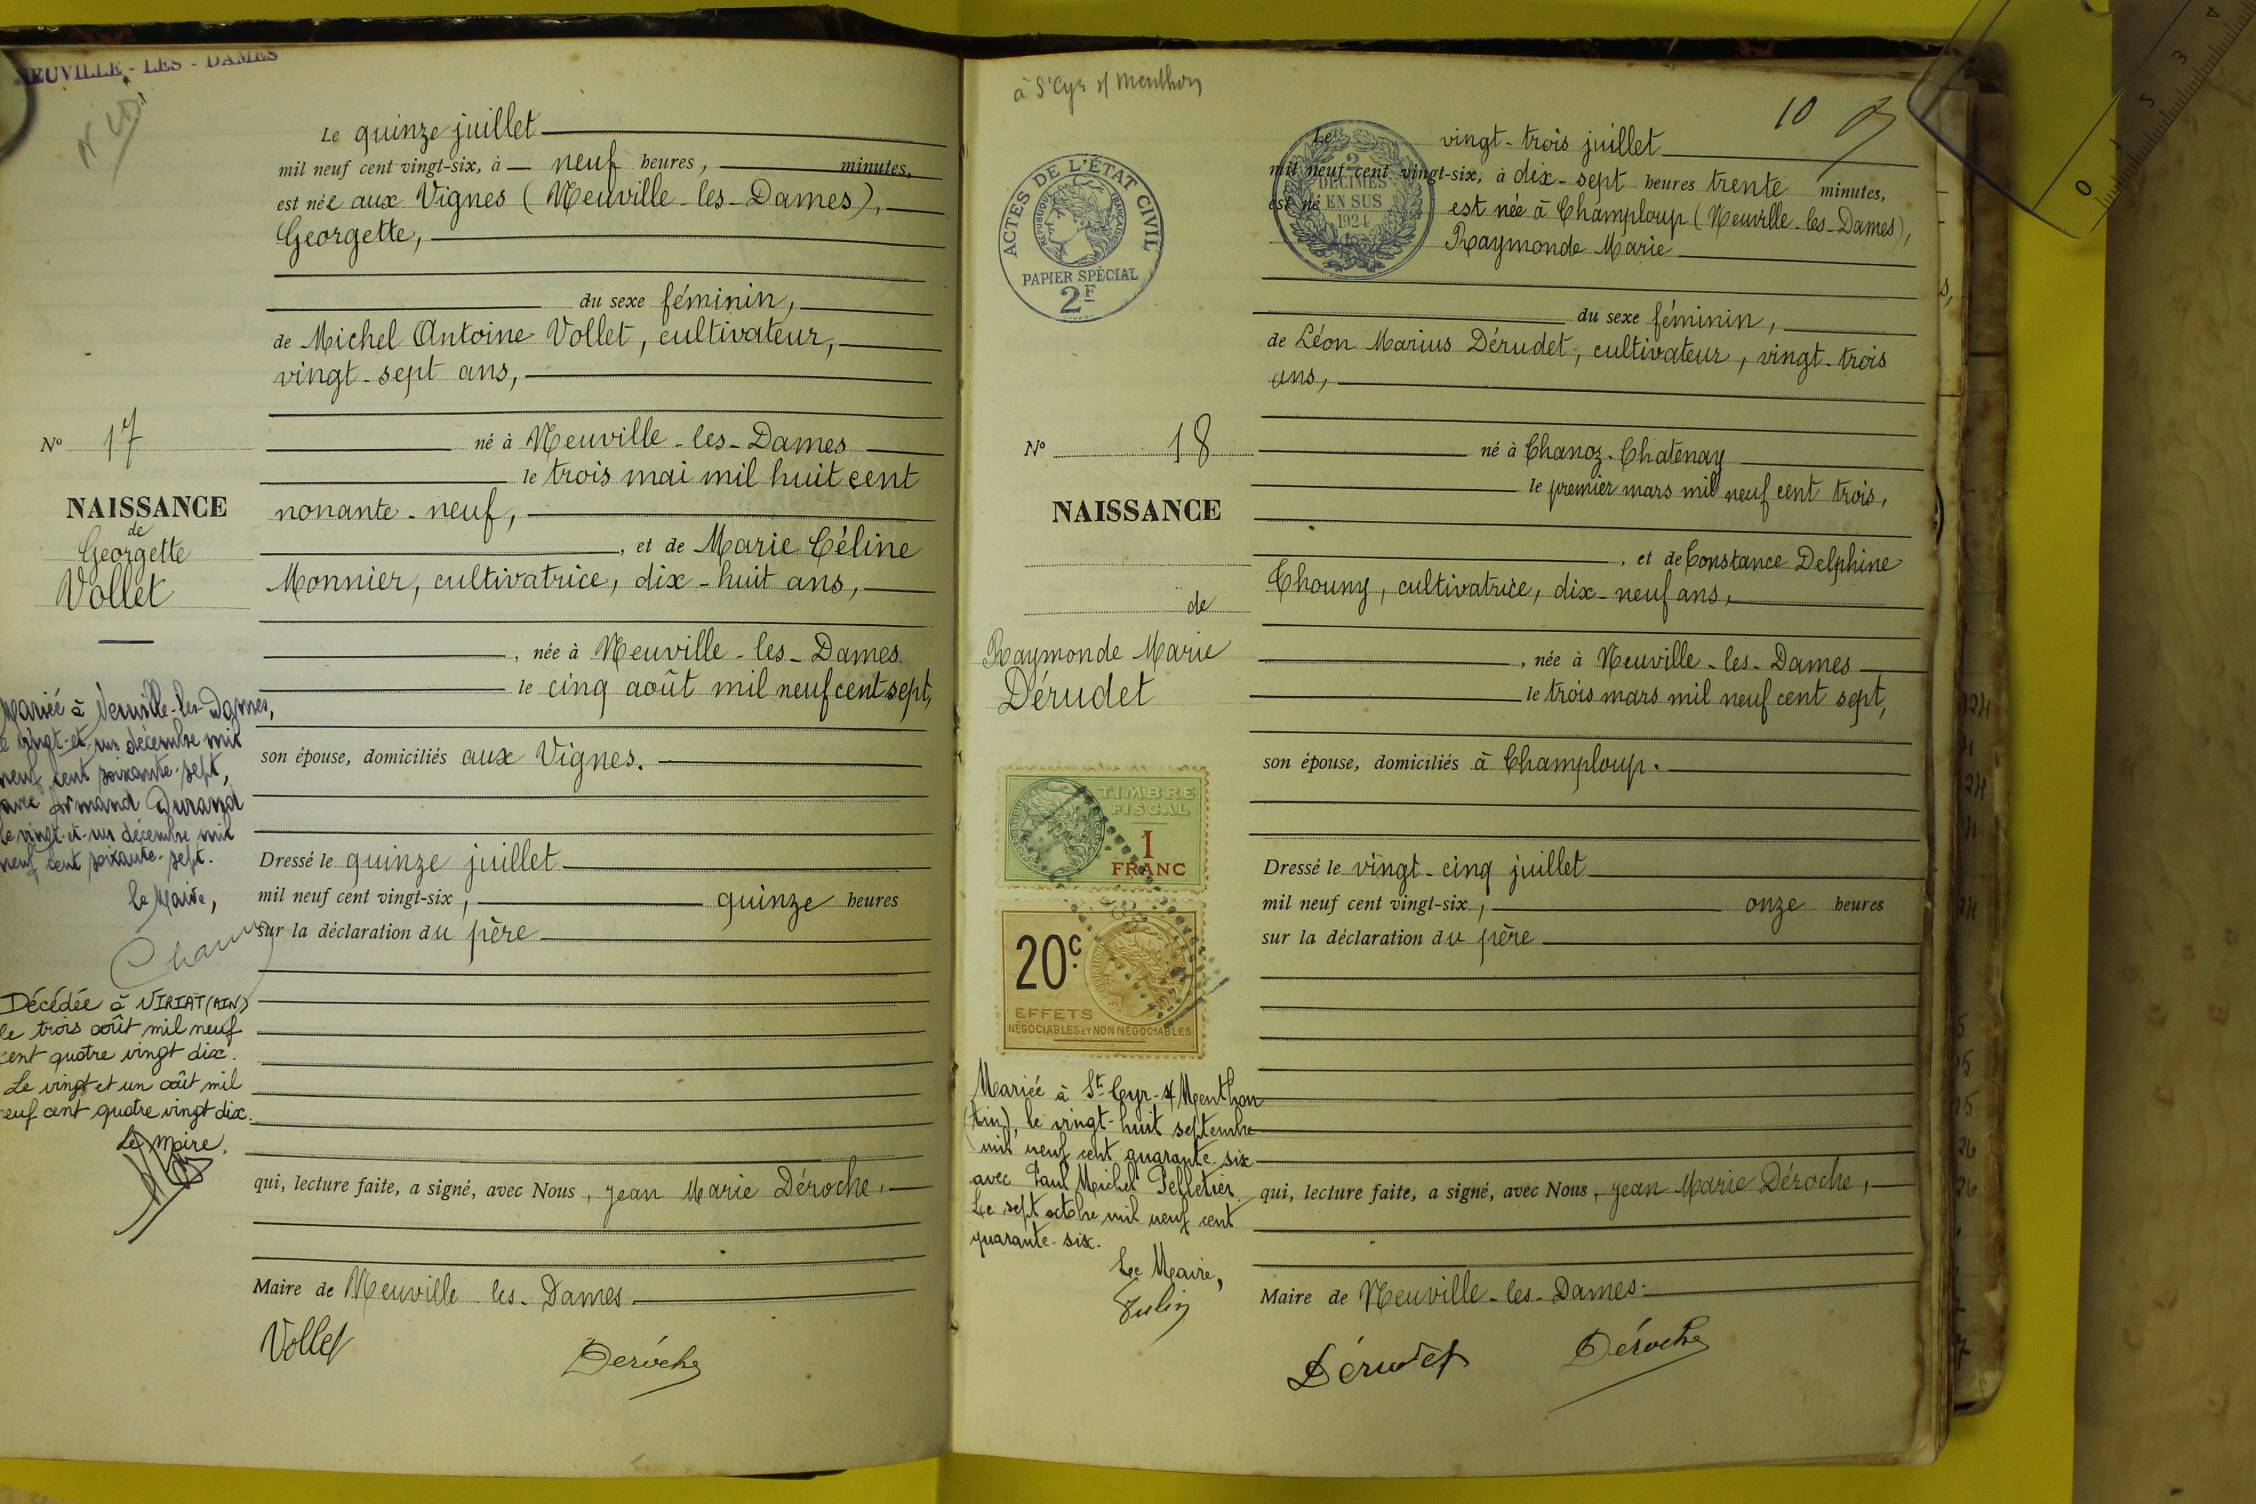 NEUVILLE - LES - DAMES
Le quinze juillet
mil neuf cent vingt-six, à neuf heures, minutes,
est née aux Vignes (Neuville-les-Dames),
Georgette,
du sexe féminin,
de Michel Antoine Vollet, cultivateur,
vingt-sept ans,
né à Neuville-les-Dames
le trois mai mil huit cent
nonante-neuf,
, et de Marie Céline
Monnier, cultivatrice, dix-huit ans,
, née à Neuville-les-Dames
le cinq août mil neuf cent sept,
son épouse, domiciliés aux Vignes.
Dressé le quinze juillet
mil neuf cent vingt-six, quinze heures
sur la déclaration du père
qui, lecture faite, a signé, avec Nous, Jean Marie Déroche,
Maire de Neuville-les-Dames
Vollet
Déroche
N° 17
NAISSANCE
de
Georgette
Vollet
Mariée à Neuville-les-Dames,
le vingt-et-un décembre mil
neuf cent soixante-sept,
avec Armand Durand
le vingt-et-un décembre mil
neuf cent soixante-sept.
Le Maire,
Décédée à VIRIAT (AIN)
le trois août mil neuf
cent quatre vingt dix.
Le vingt et un août mil
neuf cent quatre vingt dix.
Le Maire,
à St Cyr s/ Menthon
10
ACTES DE L'ÉTAT CIVIL
RÉPUBLIQUE FRANÇAISE
PAPIER SPÉCIAL
2F
2
DÉCIMES
EN SUS
1924
Le vingt-trois juillet
mil neuf cent vingt-six, à dix-sept heures trente minutes,
est né est née à Champloup (Neuville-les-Dames),
Raymonde Marie
du sexe féminin,
de Léon Marius Dérudet, cultivateur, vingt-trois
ans,
né à Chanoz-Chatenay
le premier mars mil neuf cent trois,
, et de Constance Delphine
Chouny, cultivatrice, dix-neuf ans,
, née à Neuville-les-Dames
le trois mars mil neuf cent sept,
son épouse, domiciliés à Champloup.
Dressé le vingt-cinq juillet
mil neuf cent vingt-six, onze heures
sur la déclaration du père
qui, lecture faite, a signé, avec Nous, Jean Marie Déroche,
Maire de Neuville-les-Dames.
Dérudet
Déroche
N° 18
NAISSANCE
de
Raymonde Marie
Dérudet
TIMBRE
FISCAL
1
FRANC
20c
EFFETS
NÉGOCIABLES ET NON NÉGOCIABLES
Mariée à St Cyr-s/Menthon
(Ain), le vingt-huit septembre
mil neuf cent quarante-six
avec Paul Michel Pelletier.
Le sept octobre mil neuf cent
quarante-six.
Le Maire,